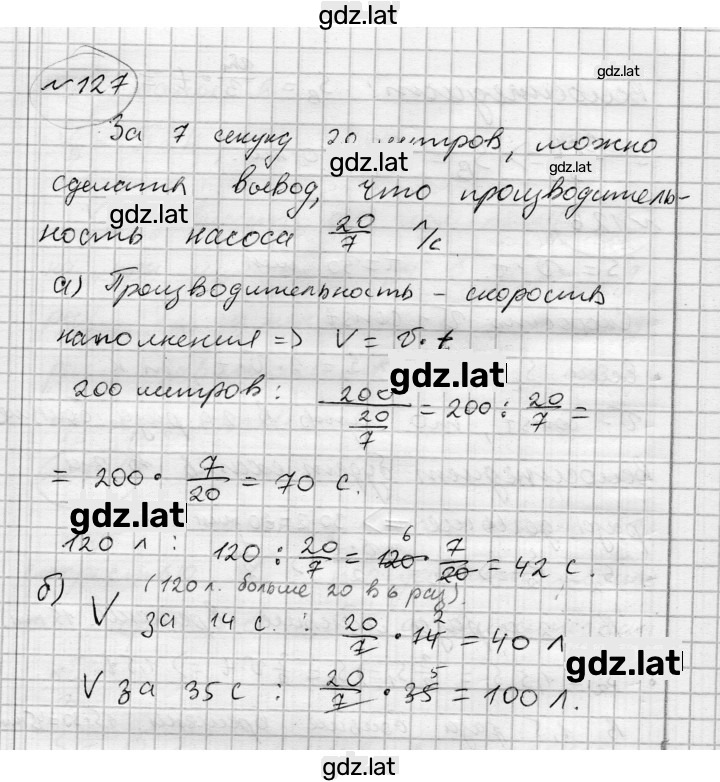 gdz.lat
№127
gdz.lat
За 7 секунд 20 литров, можно
gdz.lat
gdz.lat
сделать вывод, что производитель-
gdz.lat
ность насоса 20/7 л/с
а) Производительность – скорость
наполнения => V = v·t
gdz.lat
200 литров: 200/(20/7) = 200 : 20/7 =
= 200 · 7/20 = 70 с.
gdz.lat
120 л : 120 : 20/7 = 120 6 · 7/20 = 42 с.
(120 л. больше 20 в 6 раз).
б) V за 14 с. : 20/7 · 14 2 = 40 л
gdz.lat
V за 35 с : 20/7 · 35 5 = 100 л.
gdz.lat